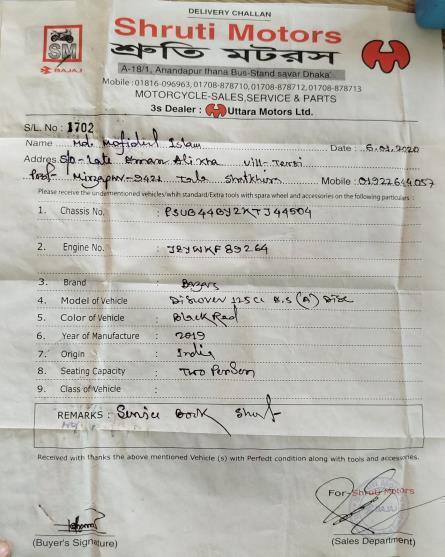 DELIVERY CHALLAN
SM
BAJAJ
Shruti Motors
শ্রুতি মটরস
A-18/1, Anandapur thana Bus-Stand savar Dhaka
Mobile : 01816-096963, 01708-878710, 01708-878712, 01708-878713
MOTORCYCLE-SALES, SERVICE & PARTS
3s Dealer : Uttara Motors Ltd.
S/L. No : 1702
Name Md. Mofidul Islam Date : 6.01.2020
Addres S/o-Late Ali vill-
Mirzapur- Mobile : 01922644057
Please receive the undermentioned vehicles/whih standard/Extra tools with spara wheel and accessories on the following particulers :
1. Chassis No. : PSUB44BY2KTJ44504
2. Engine No. : JBYWKF89264
3. Brand : Bazars
4. Model of Vehicle : Discover 125cc B.S (A) Disc
5. Color of Vehicle : Black Red
6. Year of Manufacture : 2019
7. Origin : India
8. Seating Capacity : Two Person
9. Class of Vehicle :
REMARKS : Book
Received with thanks the above mentioned Vehicle (s) with Perfedt condition along with tools and accesseries.
For-Shruti Motors
(Buyer's Signature) (Sales Department)